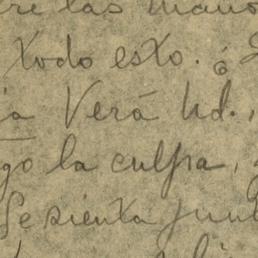 re las mano
todo esto. ó
ia Verá Ud.,
go la culpa,
Se sienta junt